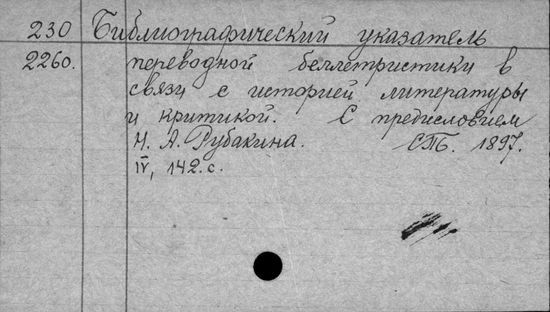 230 Библиографический указатель
2260. переводной беллетристики в
связи с историей литературы
и критикой. С предисловием
Н. А. Рубакина. СПб. 1897.
IV, 142 с.